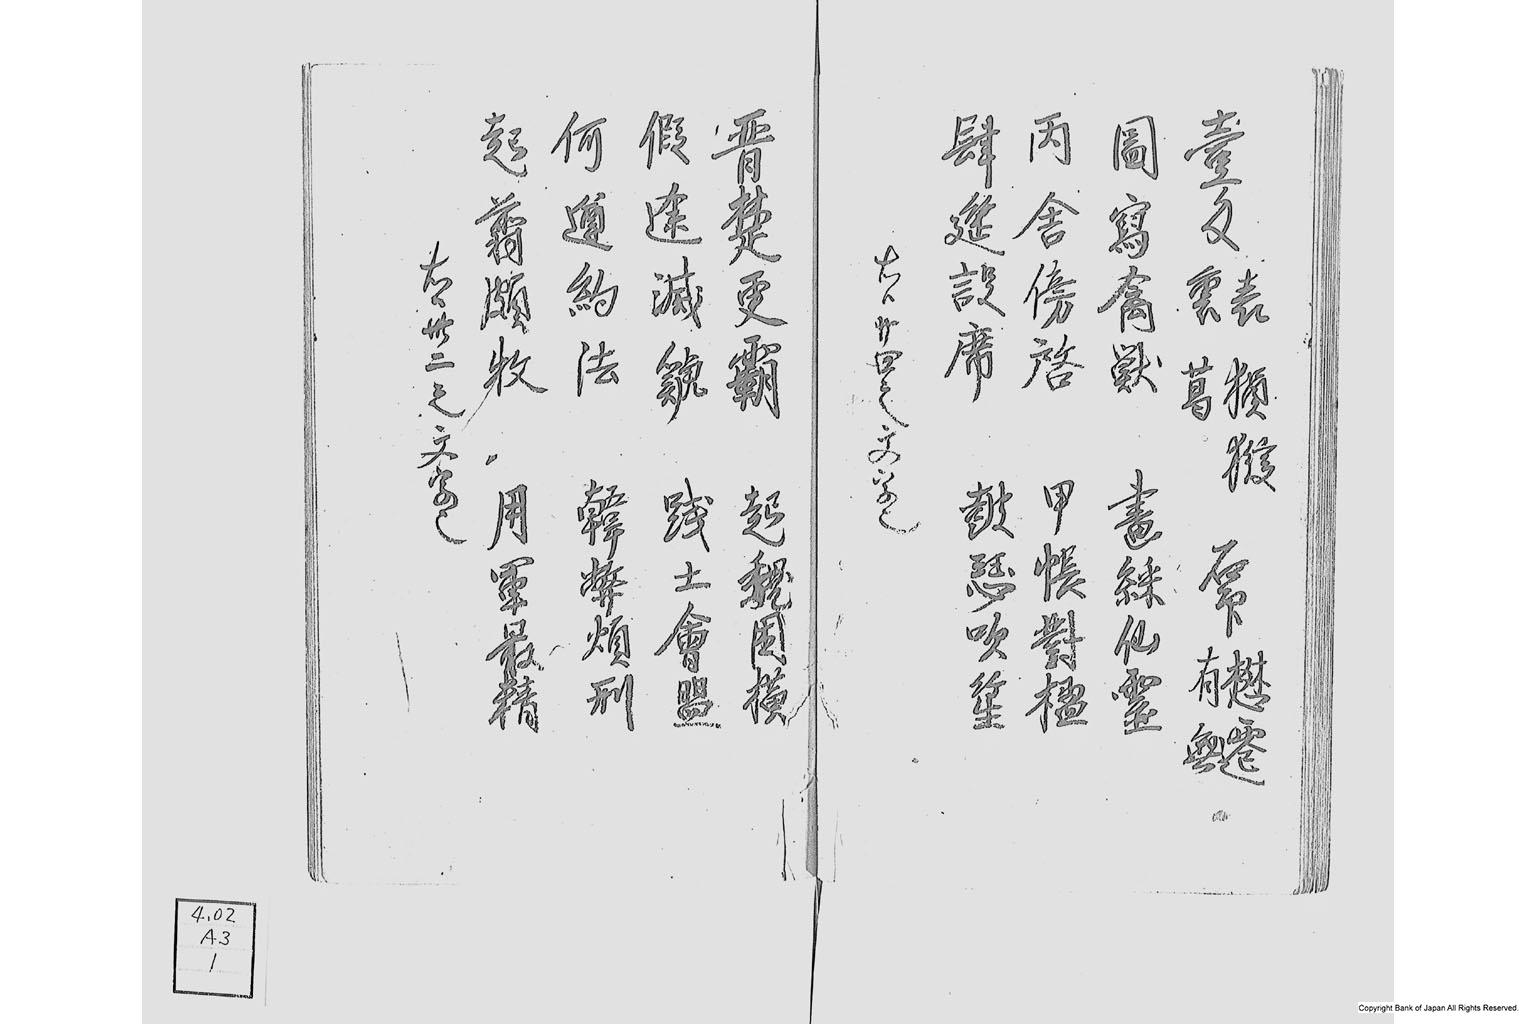 壹
圖寫禽獸 畫綵仙靈
丙舍傍啓 甲帳對楹
肆筵設席 鼓瑟吹笙
右ハ廿四之文字也
晉楚更霸 趙魏困橫
假途滅虢 踐土會盟
何遵約法 韓弊煩刑
起翦頗牧 用軍最精
右ハ卅二之文字也
4.02
A3
1
Copyright Bank of Japan All Rights Reserved.